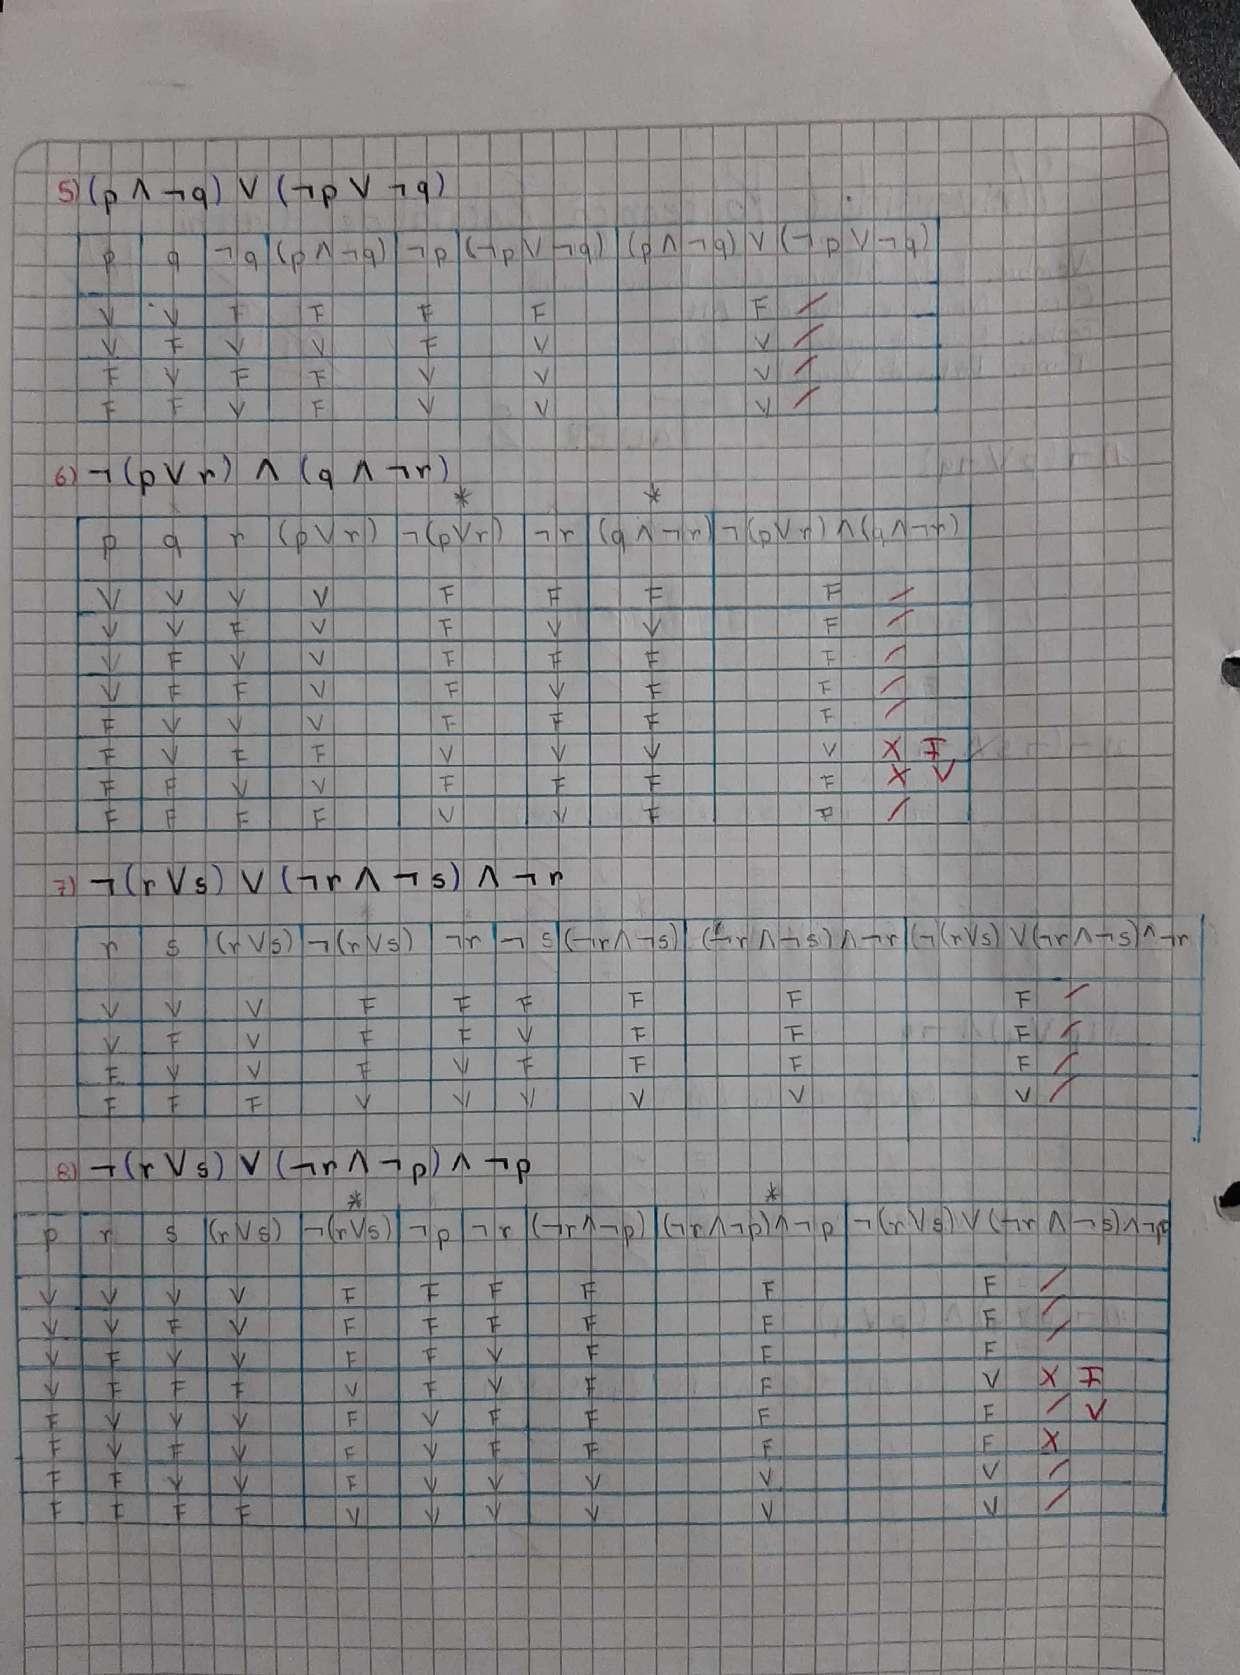 5) (p ∧ ¬q) ∨ (¬p ∨ ¬q)
p q ¬q (p ∧ ¬q) ¬p (¬p ∨ ¬q) (p ∧ ¬q) ∨ (¬p ∨ ¬q)
V V F F F F F /
V F V V F V V /
F V F F V V V /
F F V F V V V /
6) ¬(p ∨ r) ∧ (q ∧ ¬r)
* *
p q r (p ∨ r) ¬(p ∨ r) ¬r (q ∧ ¬r) ¬(p ∨ r) ∧ (q ∧ ¬r)
V V V V F F F F /
V V F V F V V F /
V F V V F F F F /
V F F V F V F F /
F V V V F F F F /
F V F F V V V V X F
F F V V F F F F X V
F F F F V V F F /
7) ¬(r ∨ s) ∨ (¬r ∧ ¬s) ∧ ¬r
r s (r ∨ s) ¬(r ∨ s) ¬r ¬s (¬r ∧ ¬s) (¬r ∧ ¬s) ∧ ¬r (¬(r ∨ s) ∨ (¬r ∧ ¬s) ∧ ¬r
V V V F F F F F F /
V F V F F V F F F /
F V V F V F F F F /
F F F V V V V V V /
8) ¬(r ∨ s) ∨ (¬r ∧ ¬p) ∧ ¬p
* *
p r s (r ∨ s) ¬(r ∨ s) ¬p ¬r (¬r ∧ ¬p) (¬r ∧ ¬p) ∧ ¬p ¬(r ∨ s) ∨ (¬r ∧ ¬s) ∧ ¬p
V V V V F F F F F F /
V V F V F F F F F F /
V F V V F F V F F F /
V F F F V F V F F V X F
F V V V F V F F F F / V
F V F V F V F F F F X
F F V V F V V V V V /
F F F F V V V V V V /